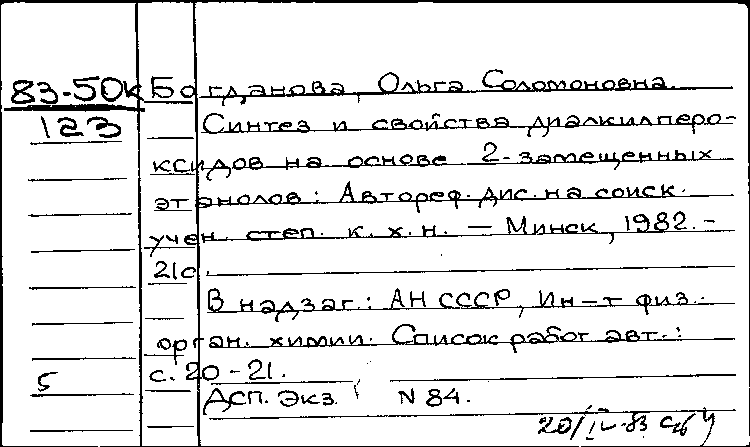 83-50к Богданова, Ольга Соломоновна.
123 Синтез и свойства диалкилперо-
ксидов на основе 2-замещенных
этанолов: Автореф. дис. на соиск.
учен. степ. к. х. н. — Минск, 1982. -
21с.
В надзаг.: АН СССР, Ин-т физ.-
орган. химии. Список работ авт.:
5 с. 20-21.
Дсп. Экз. N 84.
20/IV-83